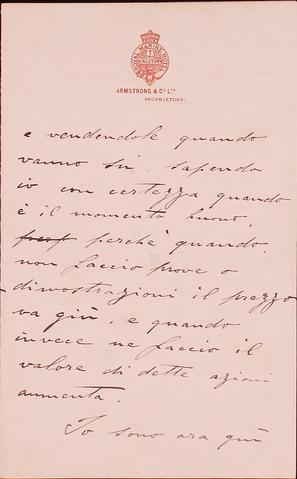 ROYAL MARINE HOTEL
KINGSTOWN
ARMSTRONG & Co. LTD
PROPRIETORS.
e vendendole quando
vanno su, sapendo
io con certezza quando
è il momento buono,
perchè quando
non faccio prove o
dimostrazioni il prezzo
va giù, e quando
invece ne faccio il
valore di dette azioni
aumenta.
Io sono ora giù